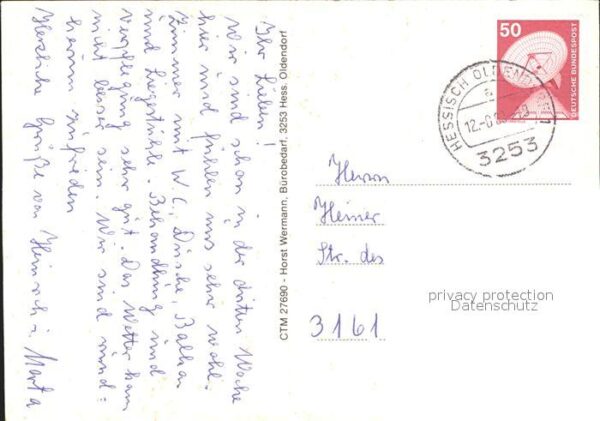 Ihr Lieben!
Wir sind schon in der dritten Woche
hier und fühlen uns sehr wohl.
Zimmer mit W.C., Dusche, Balkon
und Liegestühle. Behandlung und
verpflegung sehr gut. Das Wetter kann
nicht besser sein. Wir sind rund=
herum zufrieden
Herzliche Grüße von Heinrich u. Marta
CTM 27690 - Horst Wermann, Bürobedarf, 3253 Hess. Oldendorf
50
DEUTSCHE BUNDESPOST
HESSISCH OLDENDORF
a
12.-6.
3253
Herrn
Heiner
Str. des
3161
privacy protection
Datenschutz